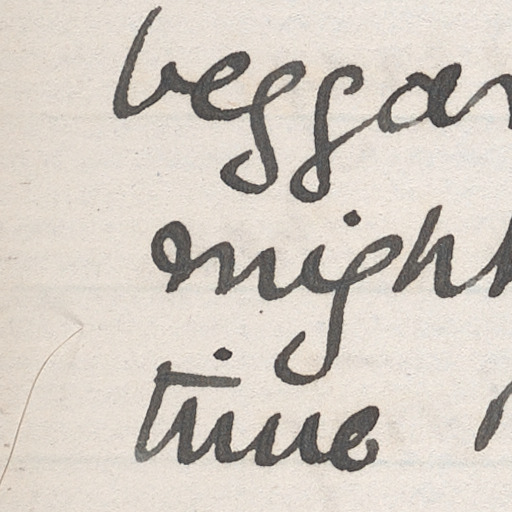 beggar
might
time